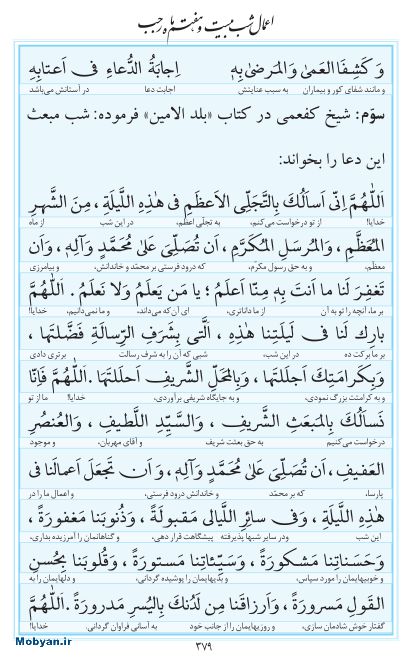 اعمال شب بیست و هفتم ماه رجب
وَ كَشِفَا العَمیٰ وَالمَرضیٰ بِهٖ اِجابَةُ الدُّعاءِ فی اَعتابِهِ
و مانند شفای کور و بیماران به سبب عنایتش اجابت دعا در آستانش می‌باشد
سوّم: شیخ کفعمی در کتاب «بلد الامین» فرموده: شب مبعث
این دعا را بخواند:
اَللّٰهُمَّ اِنّی اَسأَلُكَ بِالتَّجَلِّی الاَعظَمِ فی هٰذِهِ اللَّیلَةِ ، مِنَ الشَّهرِ
خدایا! از تو درخواست می‌کنم، به تجلّی اعظم، در این شب از ماه
المُعَظَّمِ ، وَالمُرسَلِ المُكَرَّمِ ، اَن تُصَلِّیَ عَلیٰ مُحَمَّدٍ وَآلِهٖ ، وَاَن
معظم، و به حق رسول مکرّم، که درود فرستی بر محمّد و خاندانش، و بیامرزی
تَغفِرَ لَنا ما اَنتَ بِهٖ مِنّا اَعلَمُ ؛ یا مَن یَعلَمُ وَلا نَعلَمُ . اَللّٰهُمَّ
بر ما، آنچه را تو به آن از ما داناتری، ای آن که می‌داند، و ما نمی‌دانیم، خدایا!
بارِك لَنا فی لَیلَتِنا هٰذِهِ ، الَّتی بِشَرَفِ الرِّسالَةِ فَضَّلتَها ،
بر ما برکت ده در این شب، شبی که آن را به شرف رسالت برتری دادی
وَبِكَرامَتِكَ اَجلَلتَها ، وَبِالمَحَلِّ الشَّریفِ اَحلَلتَها . اَللّٰهُمَّ فَاِنّا
و به کرامتت بزرگ نمودی، و به جایگاه شریفی برآوردی، خدایا! ما از تو
نَسأَلُكَ بِالمَبعَثِ الشَّریفِ ، وَالسَّیِّدِ اللَّطیفِ ، وَالعُنصُرِ
درخواست می‌کنیم به حق بعثت شریف و آقای مهربان، و موجود
العَفیفِ، اَن تُصَلِّیَ عَلیٰ مُحَمَّدٍ وَآلِهٖ، وَاَن تَجعَلَ اَعمالَنا فی
پارسا، که بر محمّد و خاندانش درود فرستی، و اعمال ما را در
هٰذِهِ اللَّیلَةِ ، وَفی سائِرِ اللَّیالی مَقبولَةً ، وَذُنوبَنا مَغفورَةً ،
این شب و در سایر شبها پذیرفته پیشگاهت قرار دهی، و گناهانمان را آمرزیده بداری،
وَحَسَناتِنا مَشكورَةً ، وَسَیِّئاتِنا مَستورَةً ، وَقُلوبَنا بِحُسنِ
و خوبیهایمان را مورد سپاس، و بدیهایمان را پوشیده گردانی، و دلهایمان را به
القَولِ مَسرورَةً ، وَاَرزاقَنا مِن لَدُنكَ بِالیُسرِ مَدرورَةً . اَللّٰهُمَّ
گفتار خوش شادمان سازی، و روزیهایمان را از جانب خود به آسانی فراوان گردانی. خدایا!
۳۷۹
Mobyan.ir